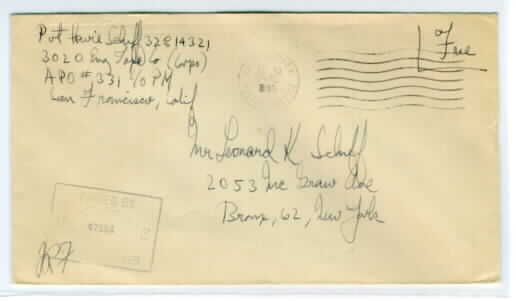 Pvt Howie Schiff 32814321
3020 Eng Co (Corps)
APO # 331 c/o PM
San Francisco, Calif
Free
Mr Leonard K. Schiff
2053 Mc Graw Ave
Bronx, 62, New York